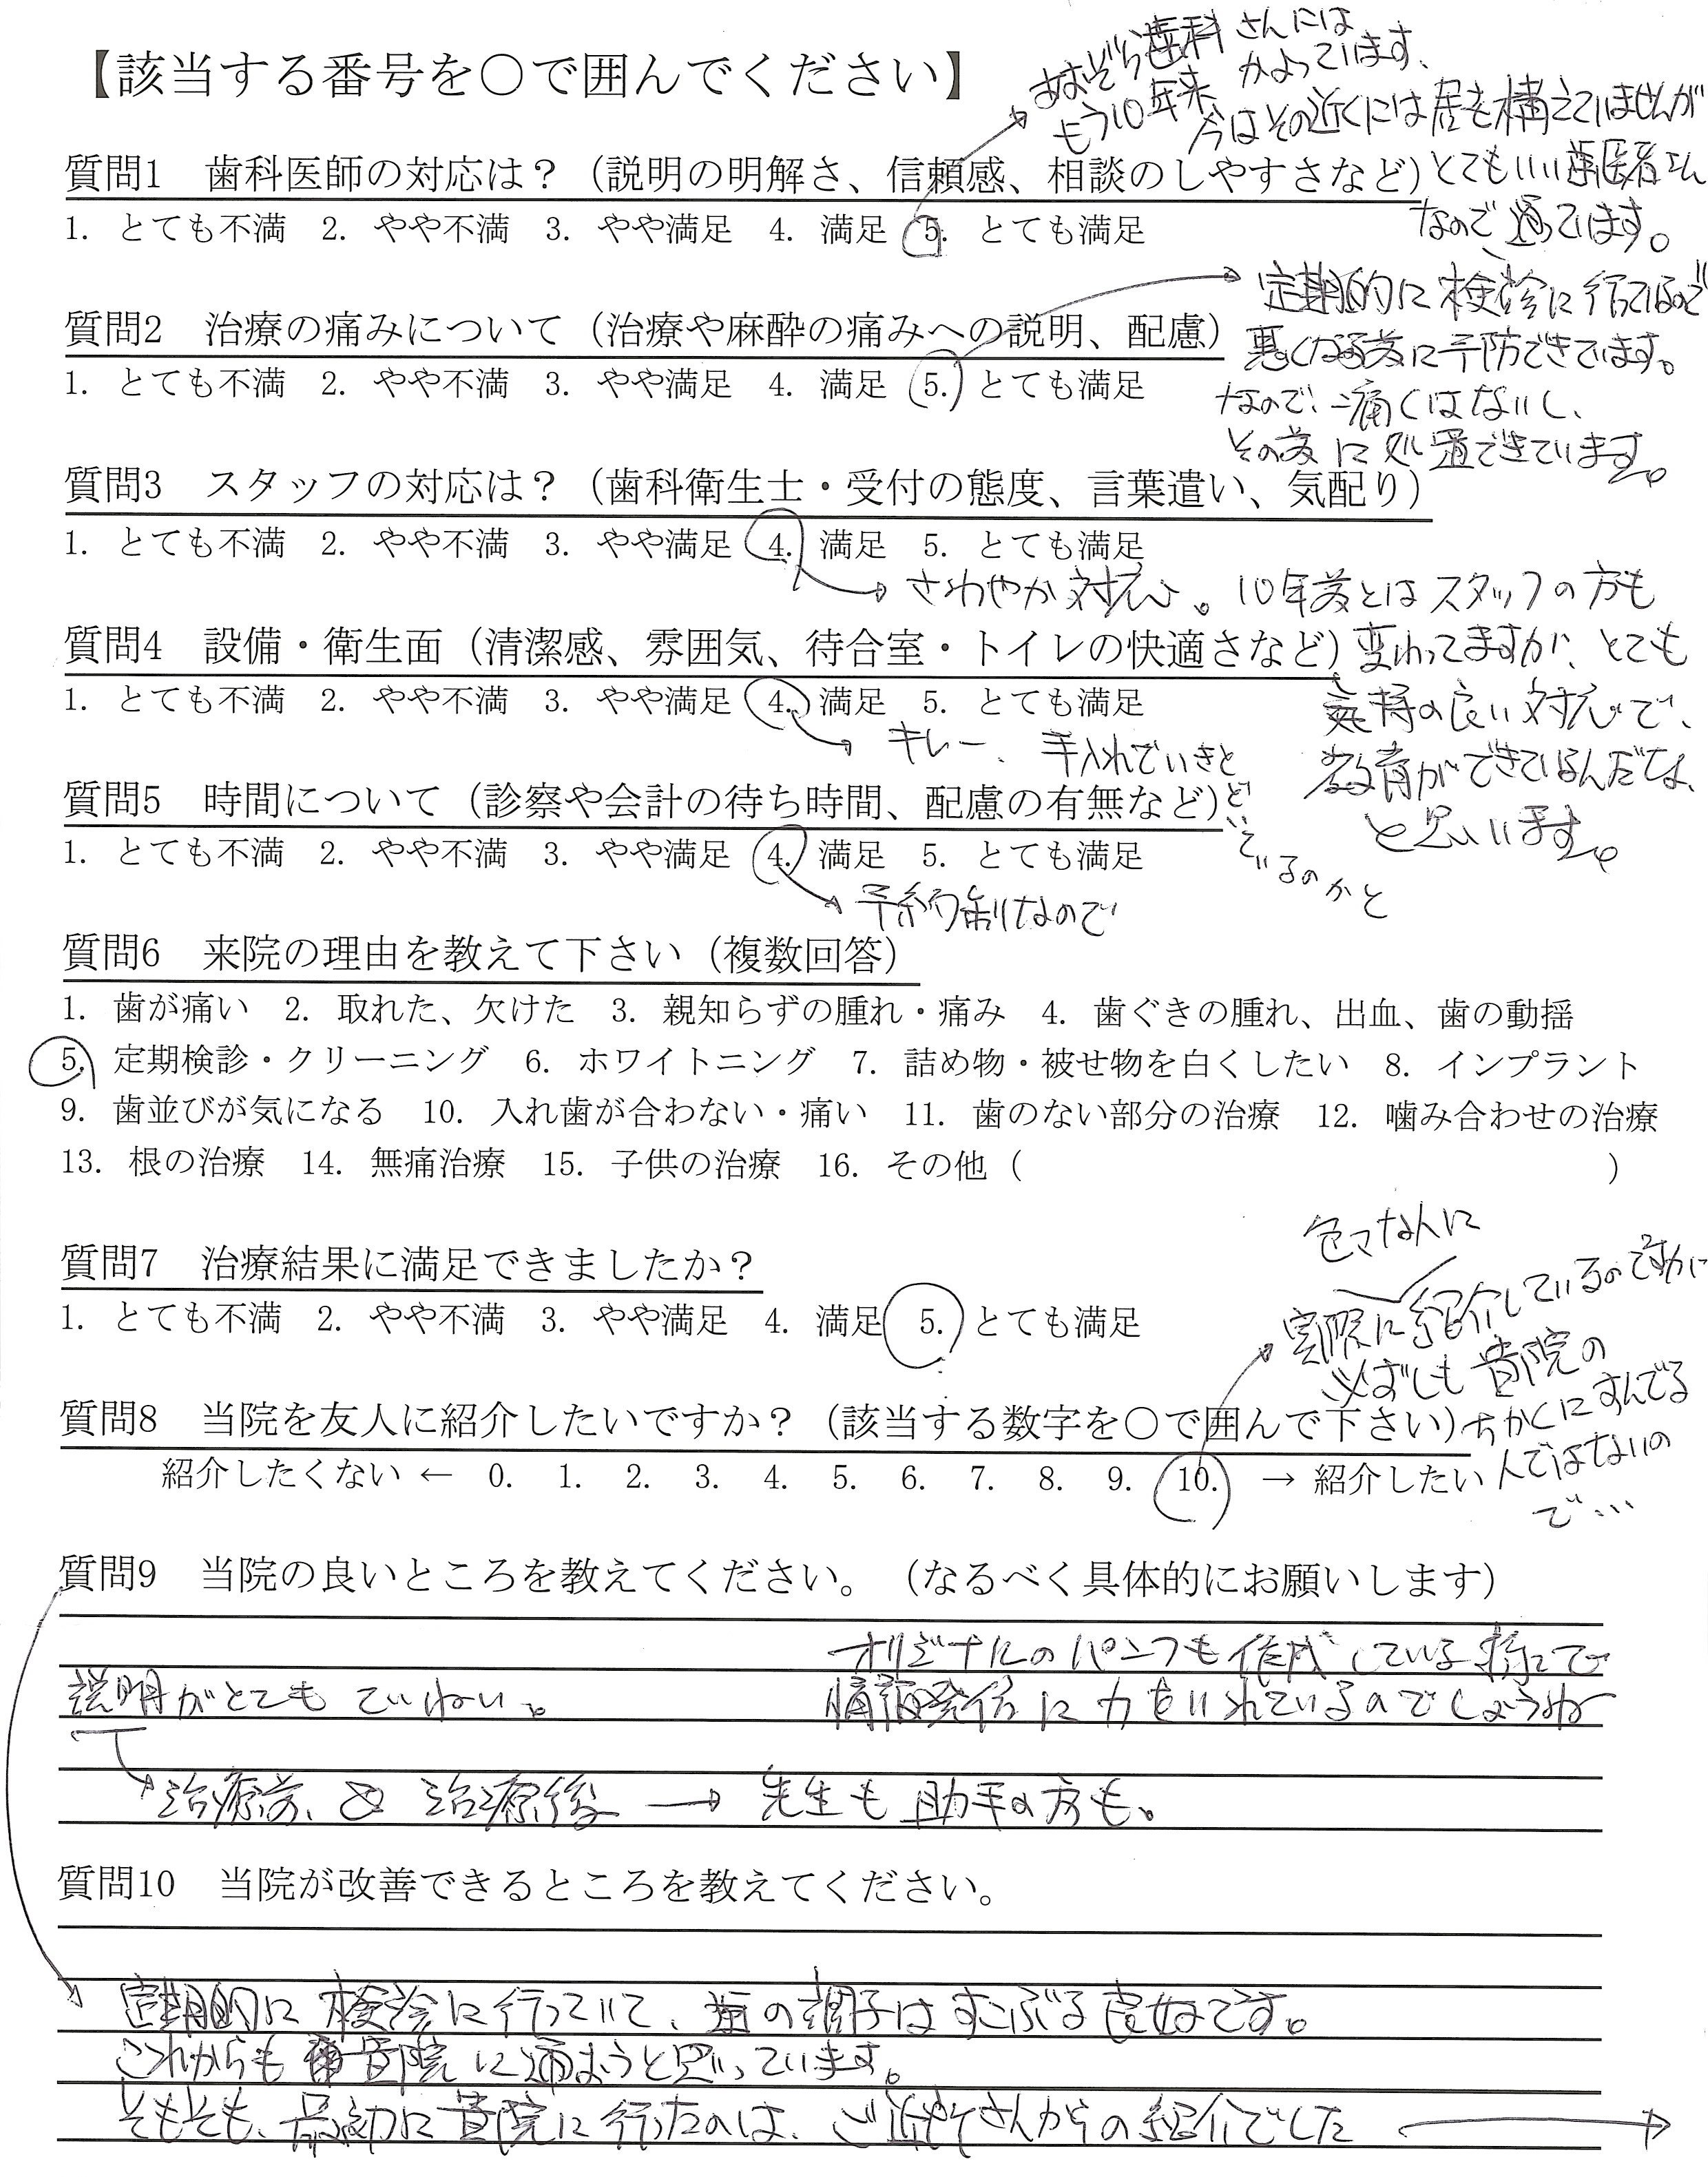 【該当する番号を○で囲んでください】
あおぞら歯科さんには
もう10年来かよっています、
今はその近くには居を構えていませんが
とてもいい歯医者さん
なので通っています。
質問1 歯科医師の対応は？（説明の明解さ、信頼感、相談のしやすさなど）
1. とても不満 2. やや不満 3. やや満足 4. 満足 5. とても満足
定期的に検診に行ってるので
悪くなる前に予防できています。
なので、痛くはないし、
その前に処置できています。
質問2 治療の痛みについて（治療や麻酔の痛みへの説明、配慮）
1. とても不満 2. やや不満 3. やや満足 4. 満足 5. とても満足
質問3 スタッフの対応は？（歯科衛生士・受付の態度、言葉遣い、気配り）
1. とても不満 2. やや不満 3. やや満足 4. 満足 5. とても満足
さわやか対応。10年前とはスタッフの方も
変わってますが、とても
気持の良い対応で、
教育ができているんだな、
と思います。
質問4 設備・衛生面（清潔感、雰囲気、待合室・トイレの快適さなど）
1. とても不満 2. やや不満 3. やや満足 4. 満足 5. とても満足
キレー、手入れでいきと
どいているのかと
質問5 時間について（診察や会計の待ち時間、配慮の有無など）
1. とても不満 2. やや不満 3. やや満足 4. 満足 5. とても満足
予約制なので
質問6 来院の理由を教えて下さい（複数回答）
1. 歯が痛い 2. 取れた、欠けた 3. 親知らずの腫れ・痛み 4. 歯ぐきの腫れ、出血、歯の動揺
5. 定期検診・クリーニング 6. ホワイトニング 7. 詰め物・被せ物を白くしたい 8. インプラント
9. 歯並びが気になる 10. 入れ歯が合わない・痛い 11. 歯のない部分の治療 12. 噛み合わせの治療
13. 根の治療 14. 無痛治療 15. 子供の治療 16. その他（ ）
質問7 治療結果に満足できましたか？
1. とても不満 2. やや不満 3. やや満足 4. 満足 5. とても満足
色々な人に
実際に紹介しているのですが
必ずしも貴院の
ちかくにすんでる
人ではないの
で…
質問8 当院を友人に紹介したいですか？（該当する数字を○で囲んで下さい）
紹介したくない ← 0. 1. 2. 3. 4. 5. 6. 7. 8. 9. 10. → 紹介したい
質問9 当院の良いところを教えてください。（なるべく具体的にお願いします）
オリジナルのパンフも作成している
説明がとてもていねい。
情報発信に力をいれているのでしょうね
治療前、と治療後 → 先生も助手の方も。
質問10 当院が改善できるところを教えてください。
定期的に検診に行っていて、歯の調子はすこぶる良好です。
これからも貴院に通おうと思っています。
そもそも、最初に貴院に行ったのは、ご近所さんからの紹介でした →